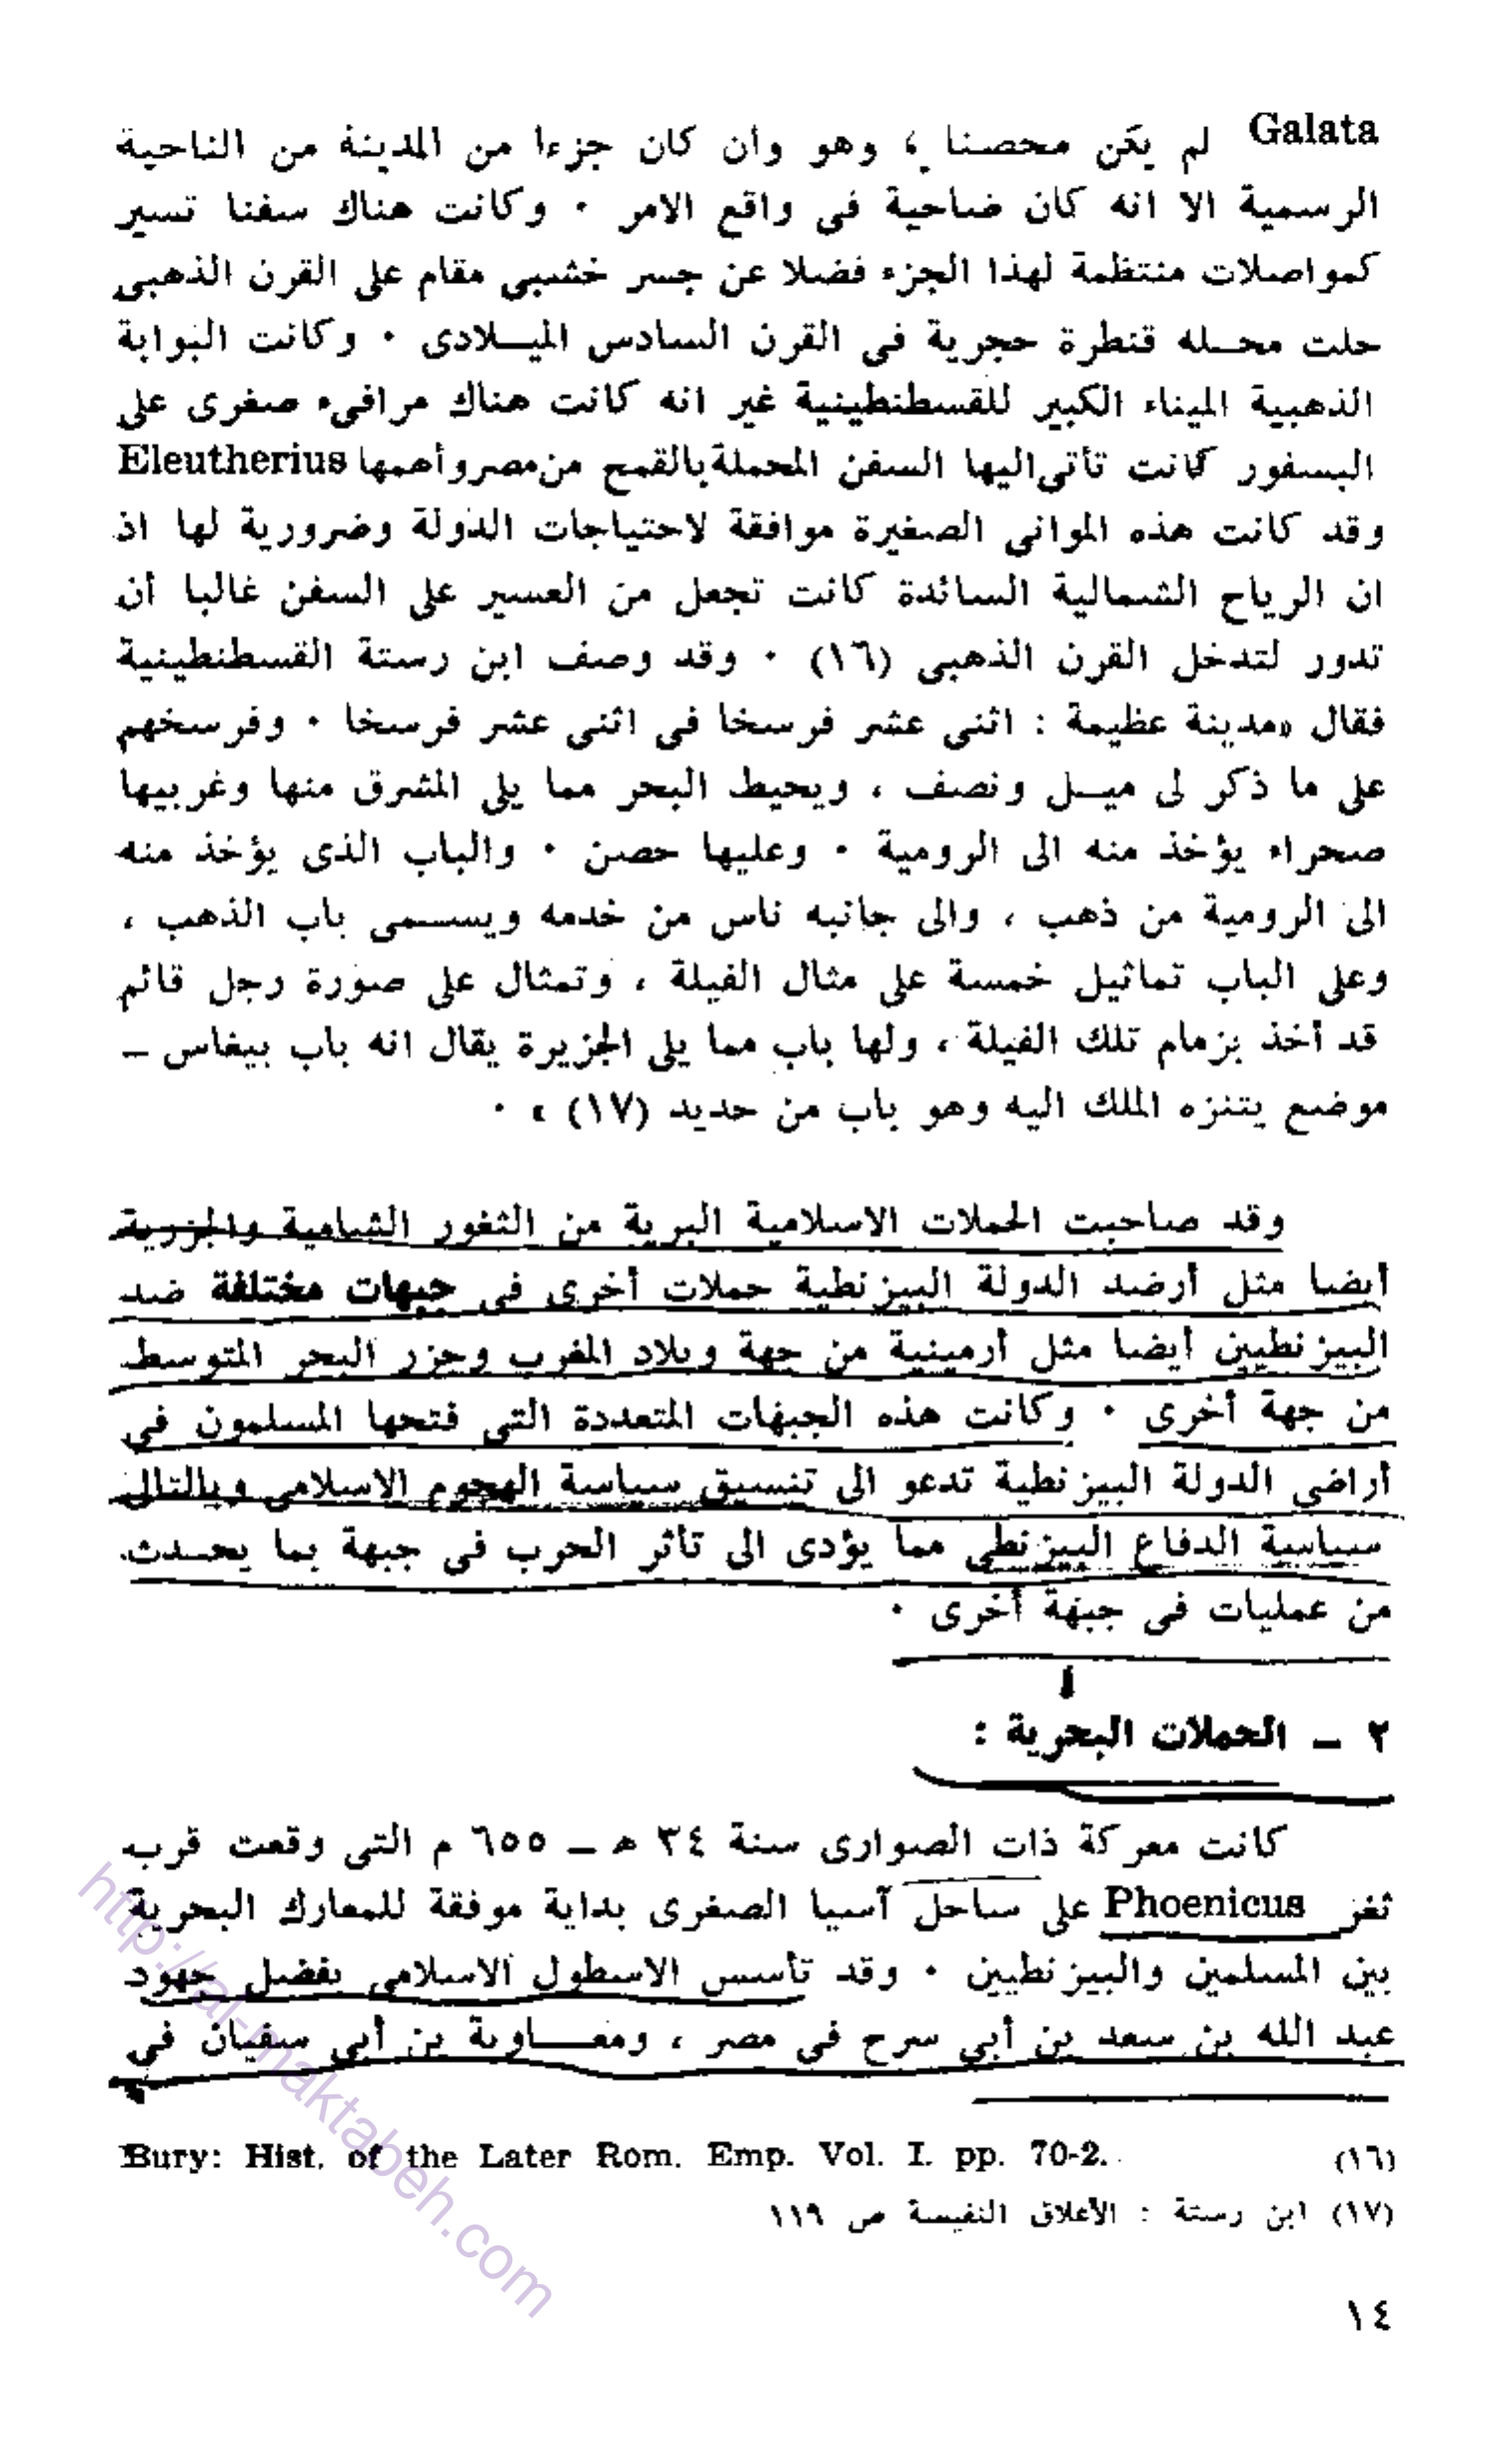 Galata لم يكن محصنا ، وهو وان كان جزءا من المدينة من الناحية
الرسمية الا انه كان ضاحية فى واقع الامر ٠ وكانت هناك سفنا تسير
كمواصلات منتظمة لهذا الجزء فضلا عن جسر خشبى مقام على القرن الذهبى
حلت محـله قنطرة حجرية فى القرن السادس الميـلادى ٠ وكانت البوابة
الذهبية الميناء الكبير للقسطنطينية غير انه كانت هناك مرافىء صغرى على
البسفور كانت تأتى اليها السفن المحملة بالقمح من مصر وأهمها Eleutherius
وقد كانت هذه الموانى الصغيرة موافقة لاحتياجات الدولة وضرورية لها اذ
ان الرياح الشمالية السائدة كانت تجعل من العسير على السفن غالبا أن
تدور لتدخل القرن الذهبى (١٦) ٠ وقد وصف ابن رستة القسطنطينية
فقال «مدينة عظيمة : اثنى عشر فرسخا فى اثنى عشر فرسخا ٠ وفرسخهم
على ما ذكر لى ميـل ونصف ، ويحيط البحر مما يلى المشرق منها وغربيها
صحراء يؤخذ منه الى الرومية ٠ وعليها حصن ٠ والباب الذى يؤخذ منه
الى الرومية من ذهب ، والى جانبه ناس من خدمه ويسـمى باب الذهب ،
وعلى الباب تماثيل خمسة على مثال الفيلة ، وتمثال على صورة رجل قائم
قد أخذ بزمام تلك الفيلة ، ولها باب مما يلى الجزيرة يقال انه باب بيغاس ــ
موضع يتنزه الملك اليه وهو باب من حديد (١٧) » ٠
وقد صاحبت الحملات الاسلامية البرية من الثغور الشامية والجزرية
أيضا مثل أرضد الدولة البيزنطية حملات أخرى فى جبهات مختلفة ضد
البيزنطيين أيضا مثل أرمينية من جهة وبلاد المغرب وجزر البحر المتوسط
من جهة أخرى ٠ وكانت هذه الجبهات المتعددة التى فتحها المسلمون في
أراضى الدولة البيزنطية تدعو الى تنسيق سياسة الهجوم الاسلامى وبالتالى
سياسية الدفاع البيزنطى مما يؤدى الى تأثر الحرب فى جبهة بما يحـدث
من عمليات فى جبهة أخرى ٠
٢ ــ الحملات البحرية :
كانت معركة ذات الصوارى سنة ٣٤ هـ ــ ٦٥٥ م التى وقعت قرب
ثغر Phoenicus على ساحل آسيا الصغرى بداية موفقة للمعارك البحرية
بين المسلمين والبيزنطيين ٠ وقد تأسس الاسطول الاسلامى بفضل جهود
عبد الله بن سعد بن أبي سرح في مصر ، ومعـاوية بن أبي سفيان في
(١٦) Bury: Hist. of the Later Rom. Emp. Vol. I. pp. 70-2.
(١٧) ابن رستة : الأعلاق النفيسة ص ١١٩
١٤
http://al-maktabeh.com